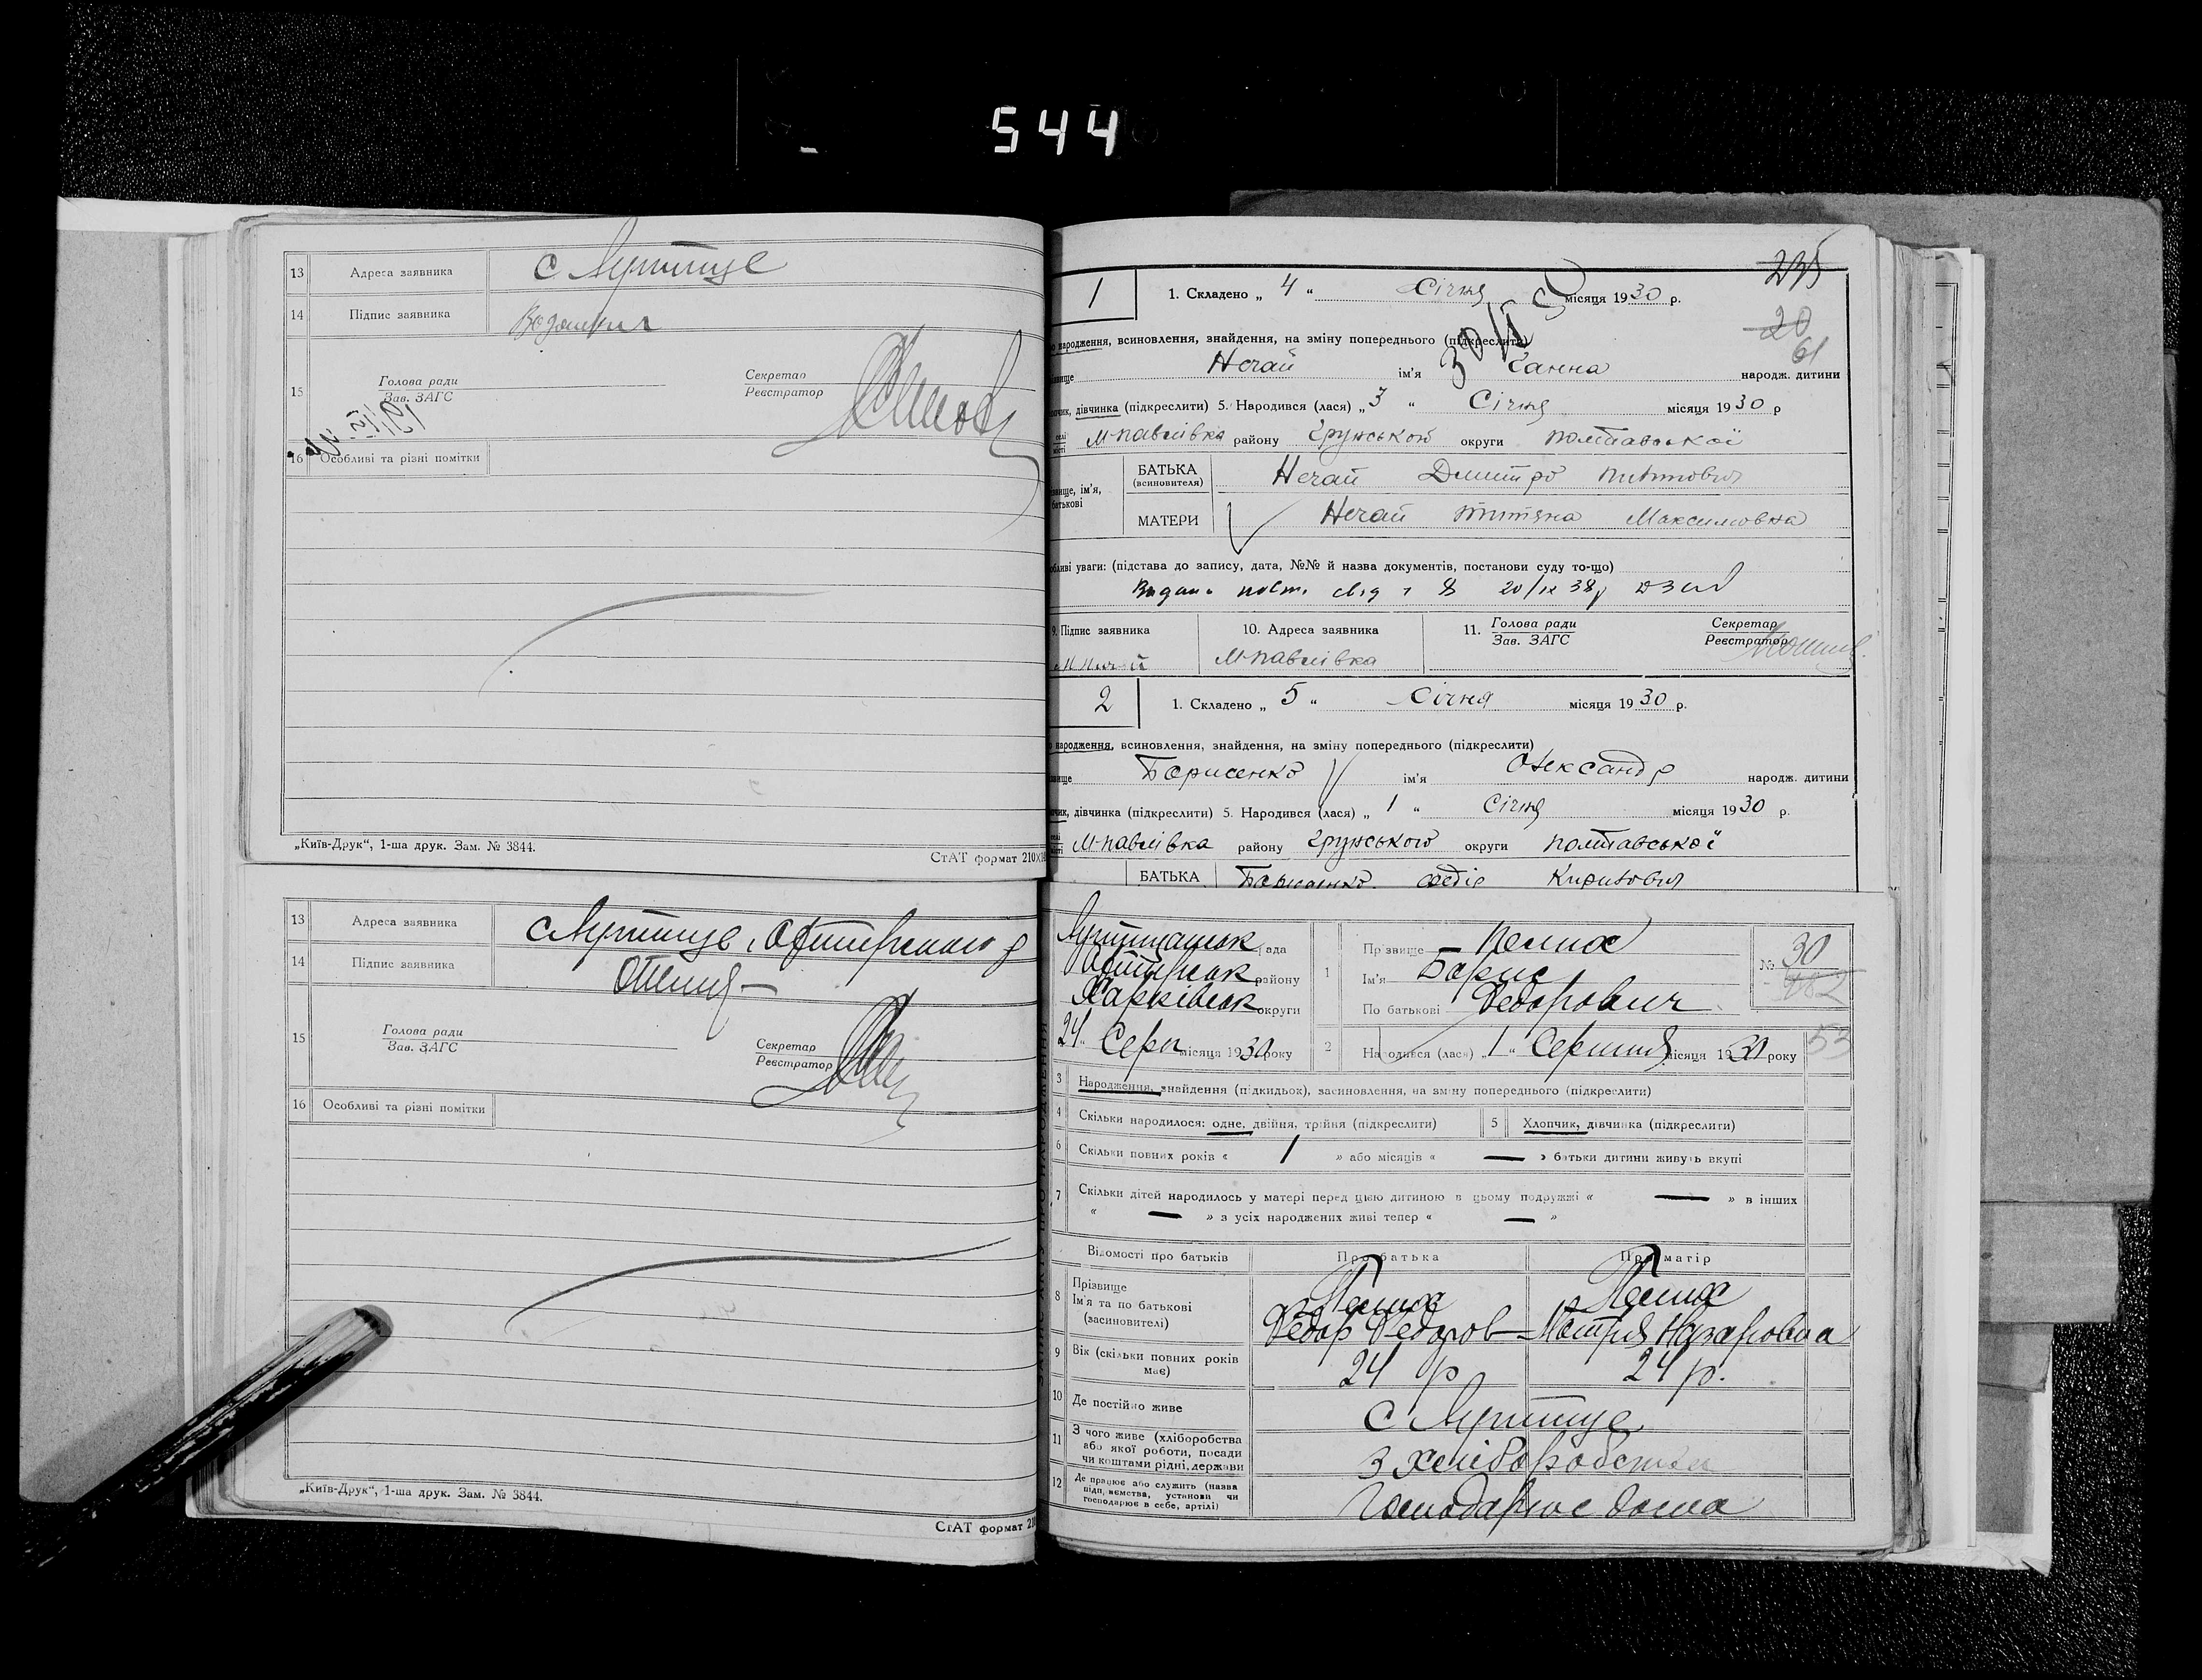 544
13 Адреса заявника с Лутище
14 Підпис заявника
15 Голова ради
Зав. ЗАГС
Секретар
Реєстратор
16 Особливі та різні помітки
„Київ-Друк“, 1-ша друк. Зам. № 3844.
СтАТ формат 210
13 Адреса заявника с Лутище, Охтирського р
14 Підпис заявника
15 Голова ради
Зав. ЗАГС
Секретар
Реєстратор
16 Особливі та різні помітки
„Київ-Друк“, 1-ша друк. Зам. № 3844.
СтАТ формат 210
235
20
61
1 1. Складено „ 4 “ Січня місяця 1930 р.
народження, всиновлення, знайдення, на зміну попереднього (підкреслити)
Нечай ім'я Ганна народж. дитини
дівчинка (підкреслити) 5. Народився (лася) „ 3 “ Січня місяця 1930 р
М-Павлівка району Грунського округи Полтавської
БАТЬКА
(всиновителя) Нечай Дмитро
МАТЕРИ Нечай Максимовна
уваги: (підстава до запису, дата, №№ й назва документів, постанови суду то-що)
20/IX 38р
9. Підпис заявника 10. Адреса заявника 11. Голова ради
Зав. ЗАГС
Секретар
Реєстратор
М-Павлівка
2 1. Складено „ 5 “ Січня місяця 1930 р.
народження, всиновлення, знайдення, на зміну попереднього (підкреслити)
Борисенко ім'я Олександр народж. дитини
дівчинка (підкреслити) 5. Народився (лася) „ 1 “ Січня місяця 1930 р.
М-Павлівка району Грунського округи Полтавської
БАТЬКА Борисенко Федір Кирилович
ради
Охтирськ району
Харківськ округи
24 Серп місяця 1930 року
1 Прізвище
Ім'я Борис
По батькові Федорович
№ 30
482
53
2 Народився (лася) „ 1 “ Серпня місяця 1930 року
3 Народження, знайдення (підкидьок), засиновлення, на зміну попереднього (підкреслити)
4 Скільки народилося: одне, двійня, трійня (підкреслити) 5 Хлопчик, дівчинка (підкреслити)
6 Скільки повних років « 1 » або місяців « — » батьки дитини живуть вкупі
7 Скільки дітей народилось у матері перед цією дитиною в цьому подружжі « — » в інших
« — » з усіх народжених живі тепер « — »
Відомості про батьків Про батька Про матір
8 Прізвище
Ім'я та по батькові
(засиновителі)
Федор Федоров Назаровна
9 Вік (скільки повних років має) 24 р 24 р.
10 Де постійно живе с Лутище
11 З чого живе (хліборобства або якої роботи, посади чи коштами рідні, держави
з хліборобства
12 Де працює або служить (назва підприємства, установи чи господарює в себе, артілі)
Господарює дома